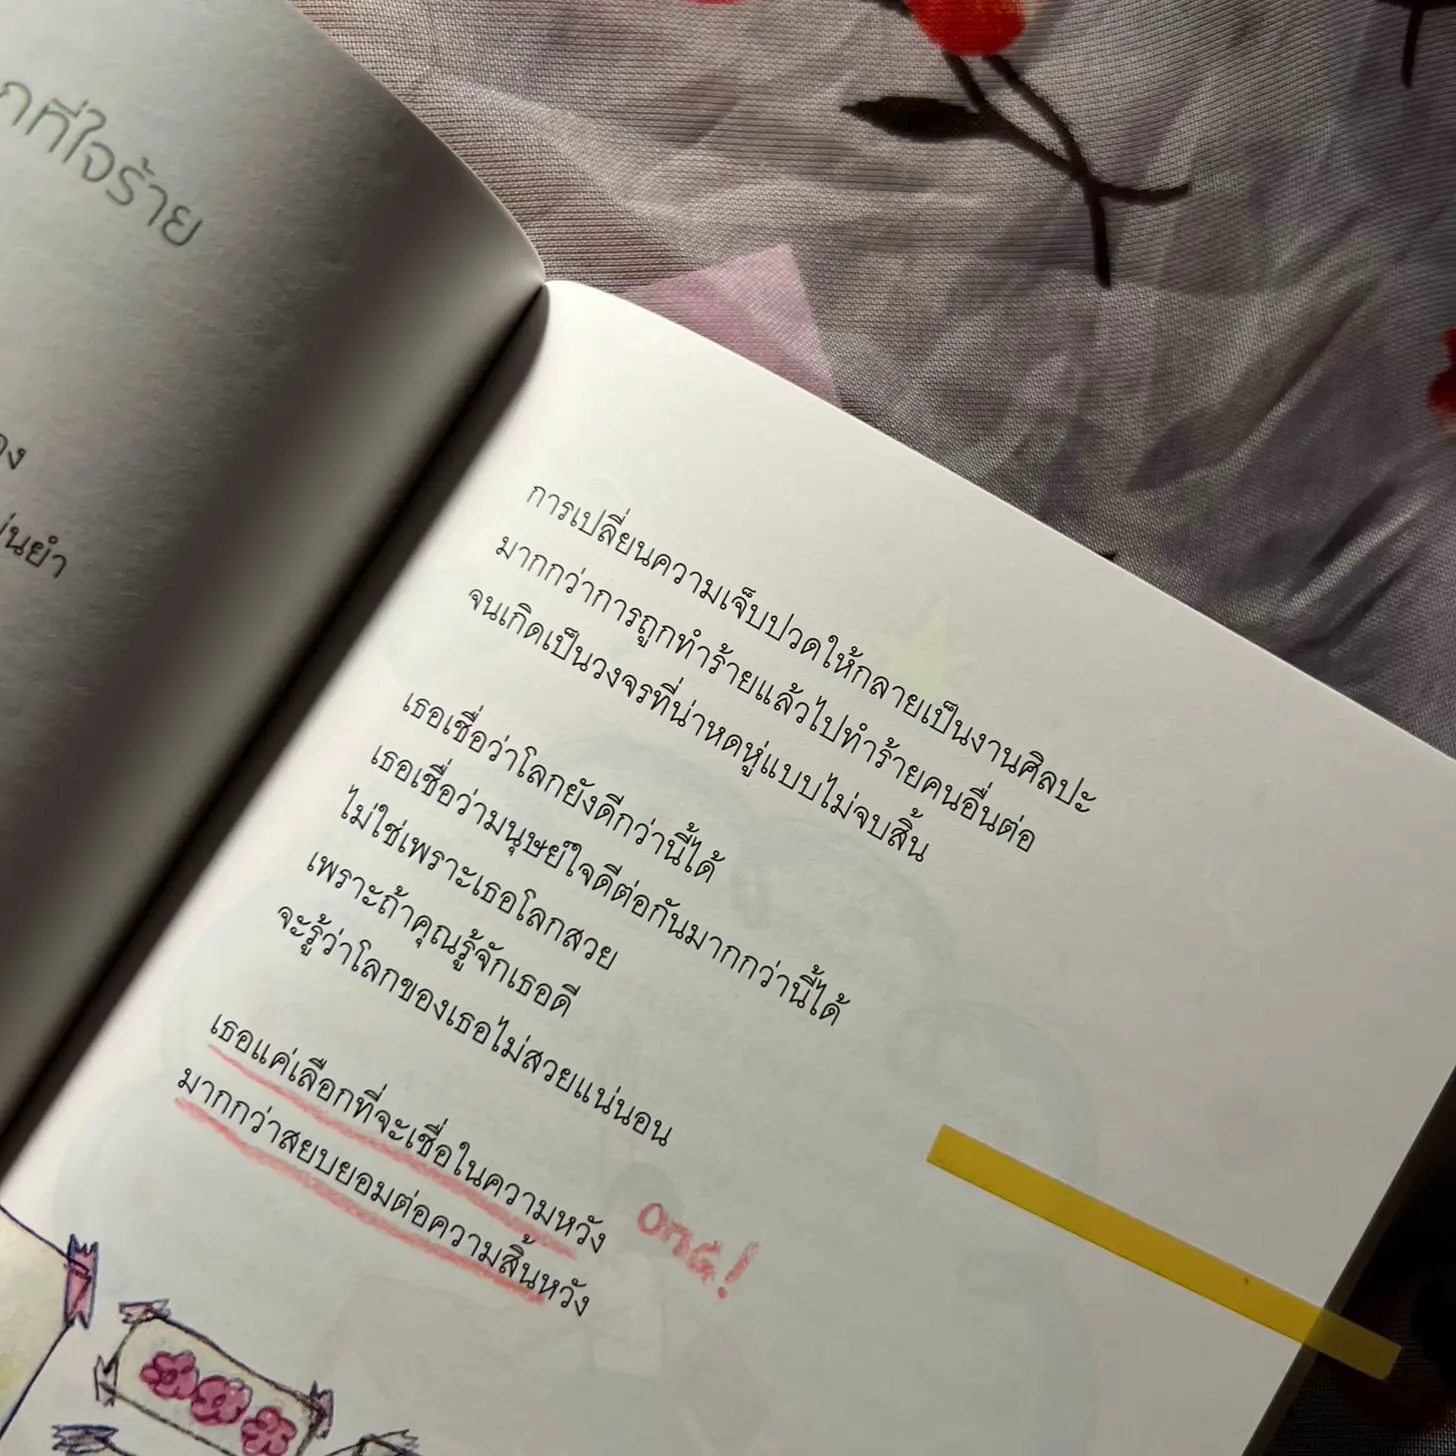 ที่ใจร้าย
การเปลี่ยนความเจ็บปวดให้กลายเป็นงานศิลปะ
มากกว่าการถูกทำร้ายแล้วไปทำร้ายคนอื่นต่อ
จนเกิดเป็นวงจรที่น่าหดหู่แบบไม่จบสิ้น
เธอเชื่อว่าโลกยังดีกว่านี้ได้
เธอเชื่อว่ามนุษย์ใจดีต่อกันมากกว่านี้ได้
ไม่ใช่เพราะเธอโลกสวย
เพราะถ้าคุณรู้จักเธอดี
จะรู้ว่าโลกของเธอไม่สวยแน่นอน
เธอแค่เลือกที่จะเชื่อในความหวัง
มากกว่าสยบยอมต่อความสิ้นหวัง
OMG!